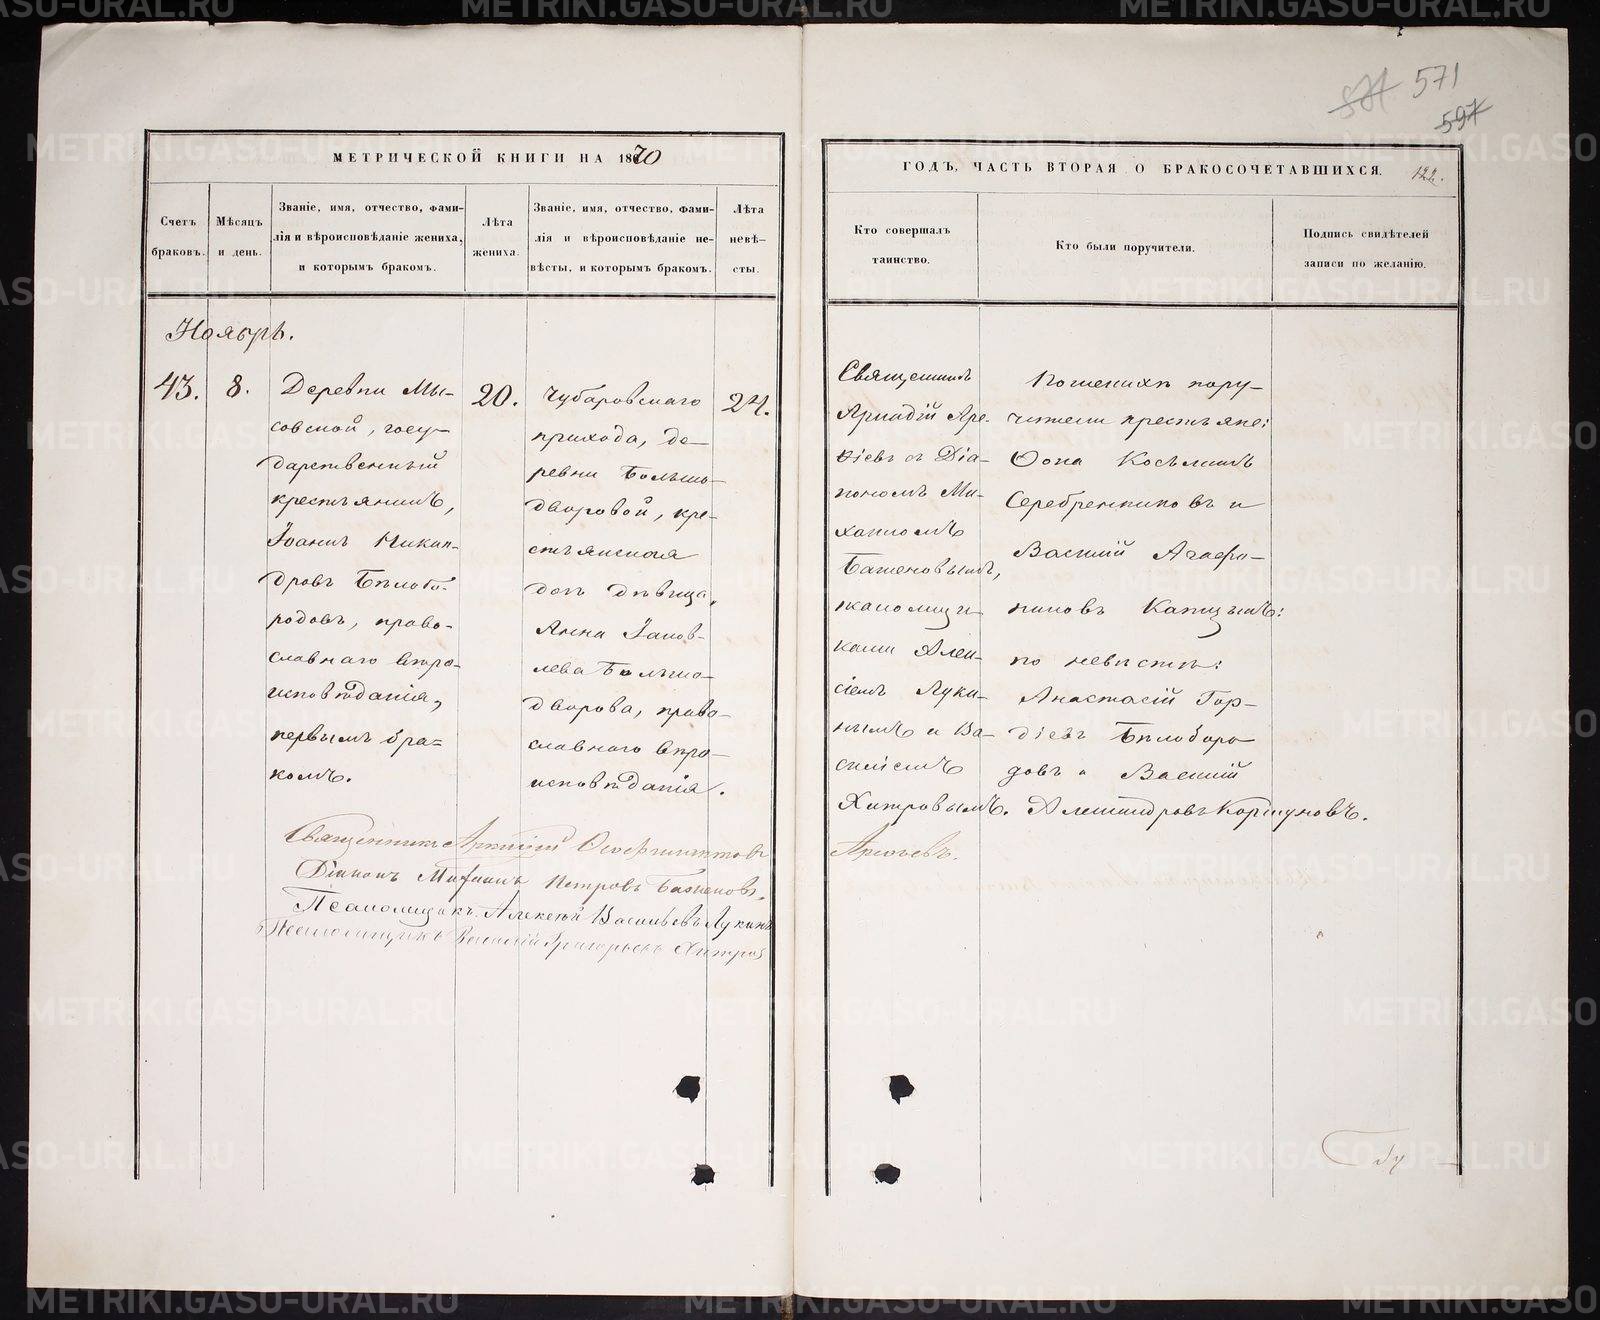 571
597
МЕТРИЧЕСКОЙ КНИГИ НА 1870
Счетъ браковъ.
Мѣсяцъ и день.
Званіе, имя, отчество, фами-
лія и вѣроисповѣданіе жениха,
и которымъ бракомъ.
Лѣта жениха.
Званіе, имя, отчество, фами-
лія и вѣроисповѣданіе не-
вѣсты, и которымъ бракомъ.
Лѣта невѣ-
сты.
Ноябрь.
43.
8.
Деревни Мы-
совской, госу-
дарственный
крестьянинъ,
Іоаннъ Никан-
дровъ Бѣлобо-
родовъ, право-
славнаго вѣро-
исповѣданія,
первымъ бра-
комъ.
20.
Чубаровскаго
прихода, де-
ревни Больше-
дворовой, кре-
стьянская
дочь дѣвица,
Анна Іаков-
лева Больше-
дворова, право-
славнаго вѣро-
исповѣданія.
24.
Священникъ
Діаконъ Михаилъ Петровъ Баженовъ,
Псаломщикъ Алексѣй Васильевъ Лукинъ
Псаломщикъ Василій Григорьевъ Хитров
ГОДЪ, ЧАСТЬ ВТОРАЯ О БРАКОСОЧЕТАВШИХСЯ.
122.
Кто совершалъ
таинство.
Кто были поручители.
Подпись свидѣтелей
записи по желанію.
Священникъ
Аркадій Аре-
фіевъ съ Діа-
кономъ Ми-
хаиломъ
Баженовымъ,
псаломщи-
ками Алек-
сіемъ Луки-
нымъ и Ва-
силіемъ
Хитровымъ.
По женихѣ пору-
чители крестьяне:
Ѳома Косьминъ
Серебренниковъ и
Василій Агафо-
никовъ Капицынъ:
по невѣстѣ:
Анастасій Гор-
діевъ Бѣлоборо
довъ и Василій
Александровъ Коршуновъ.
Арефьевъ.
METRIKI.GASO-URAL.RU